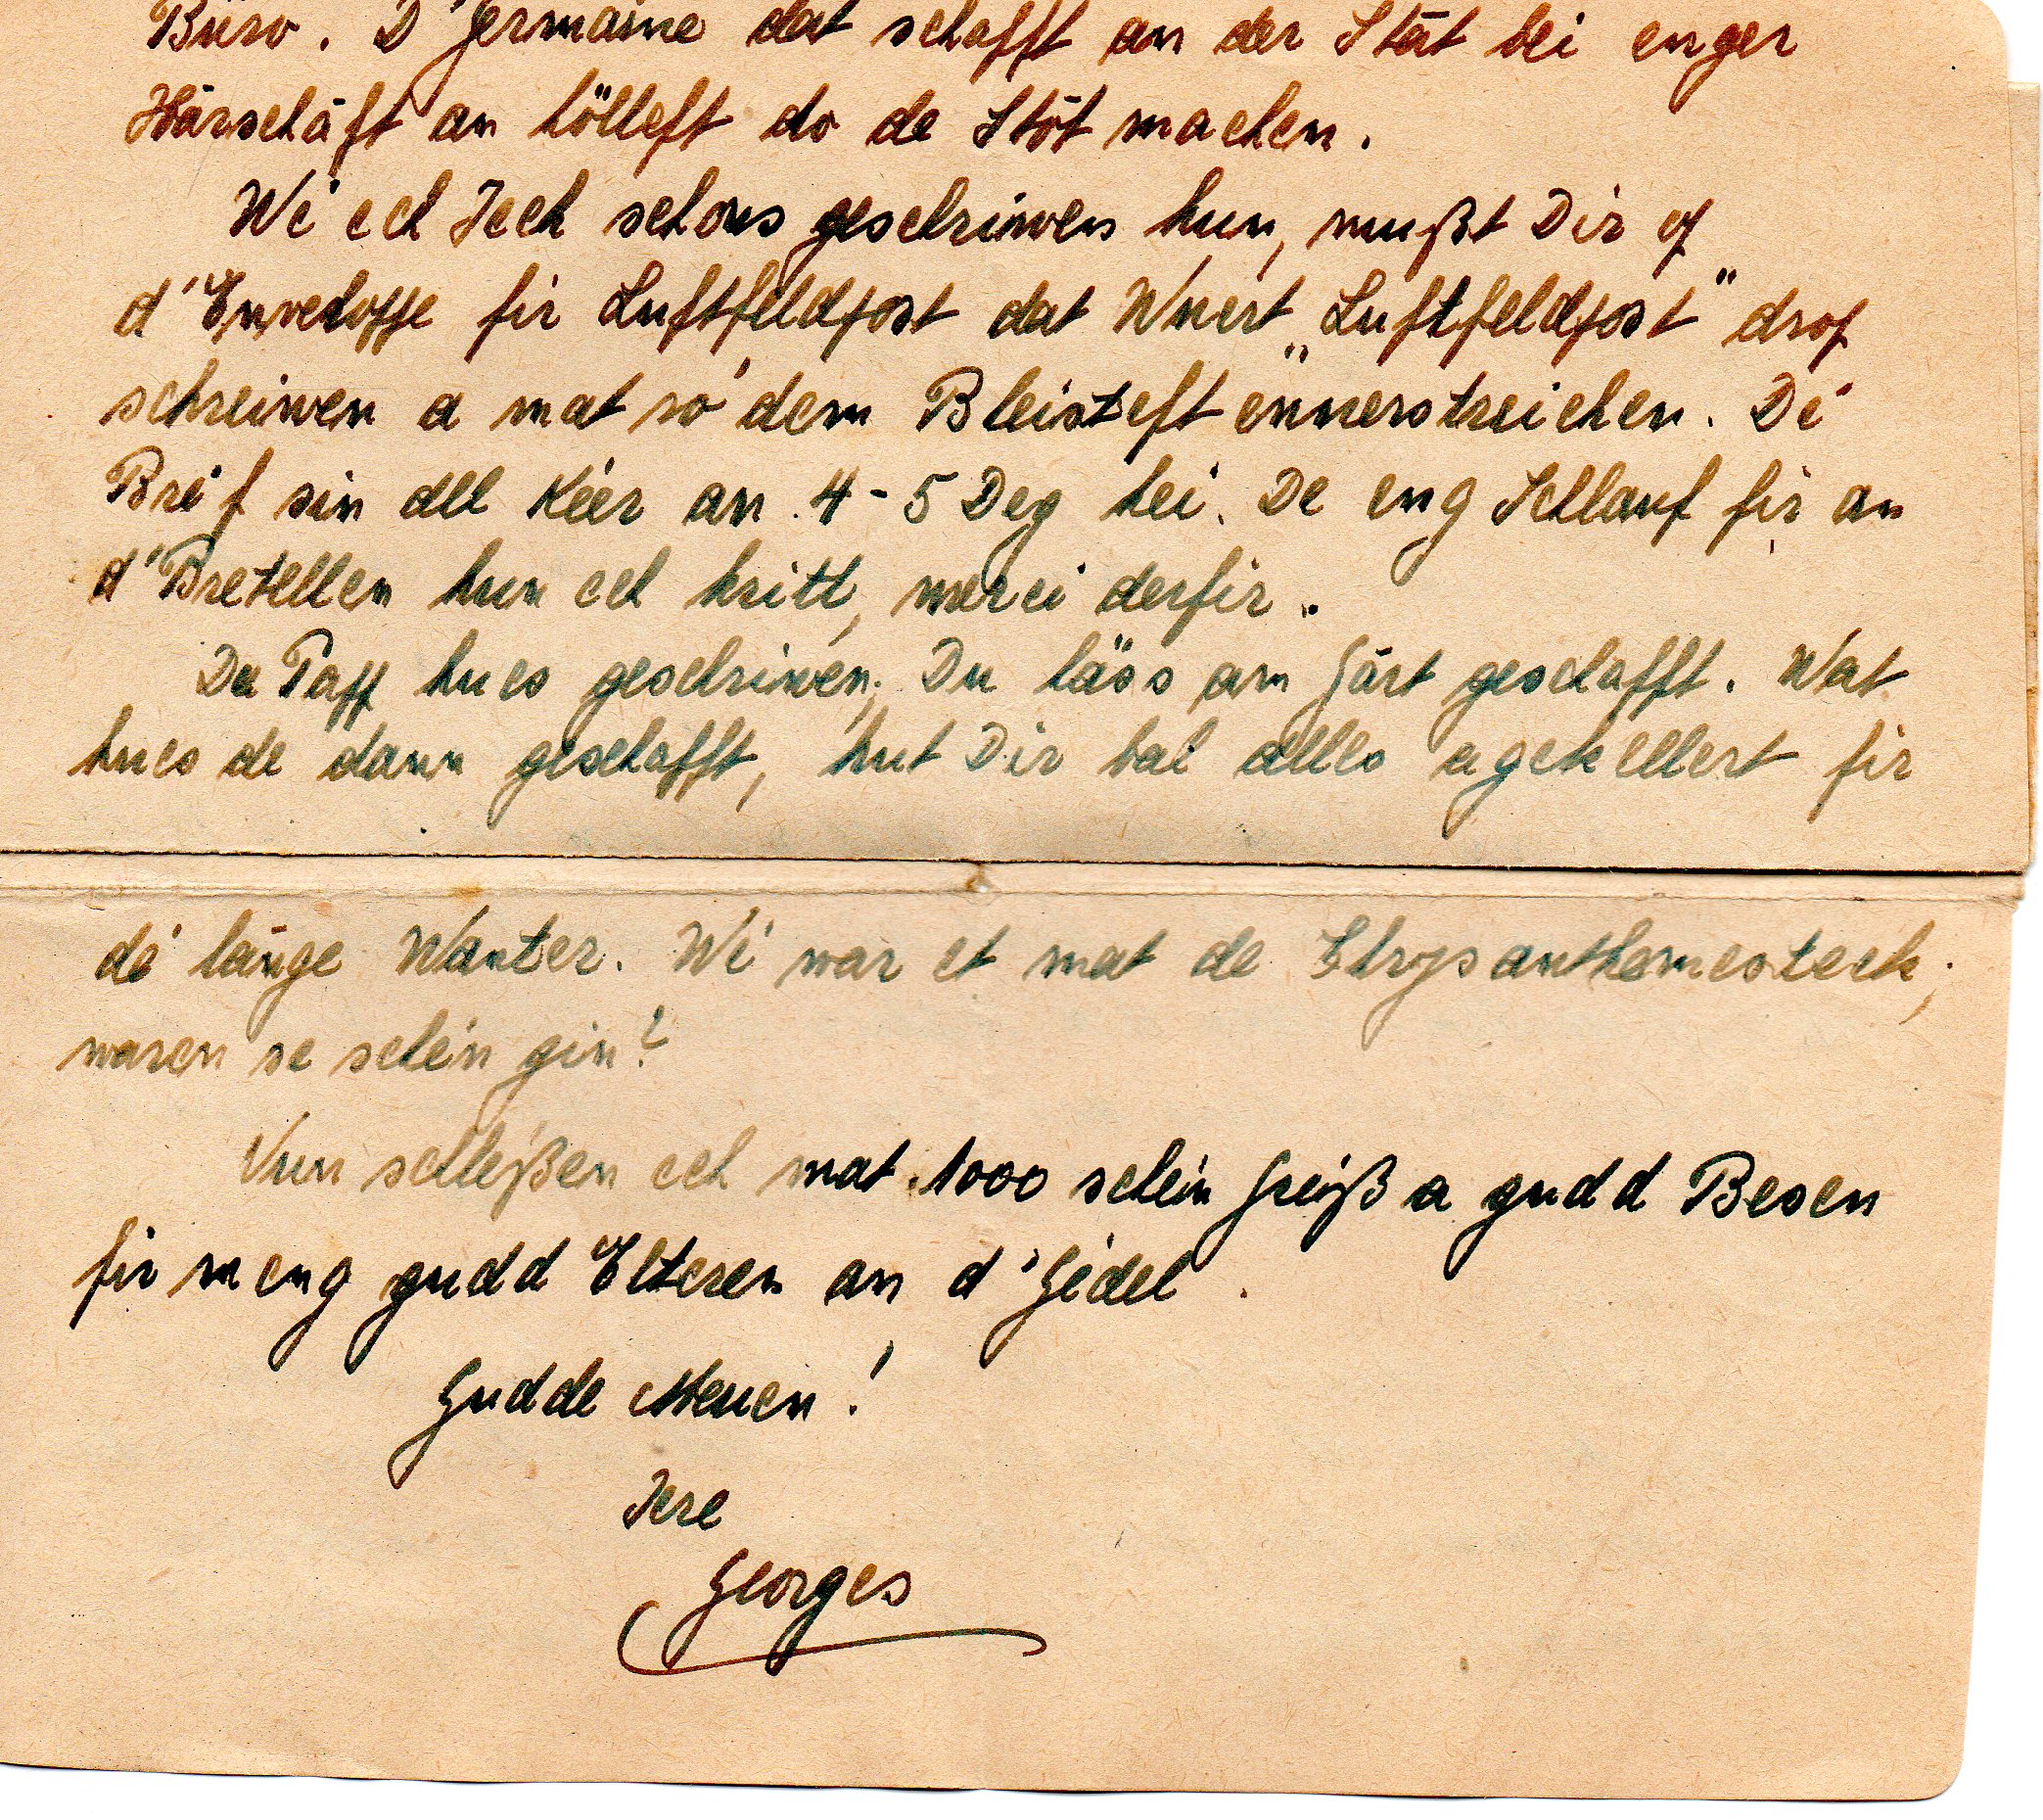 Büro. D'Germaine dat schafft an der Stât bei enger
Härschâft an hölleft do de Stôt machen.
Wé ech Iech schons geschriwen hun, mußt Dir of
d'Enveloppe fir Luftfeldpost dat Wuert „Luftfeldpost" drop
schreiwen a mat ro'dem Bleisteft ënnerstreichen. Dé
Bréf sin all Kéer an 4-5 Deg hei. De eng Schlauf fir an
d'Bretellen hun ech kritt, merci derfir.
De Papp hues geschriwen, Du häss am Gârt geschafft. Wat
hues de dann geschafft, hut Dir bal alles agekellert fir
dé lânge Wanter. Wé war et mat de Chrysanthemesteck,
waren se schén gin?
Nun schléßen ech mat 1000 schéin Gréiß a gudd Besen
fir meng gudd Elteren an d'Gédel.
Gudde Meuen!
Iere
Georges